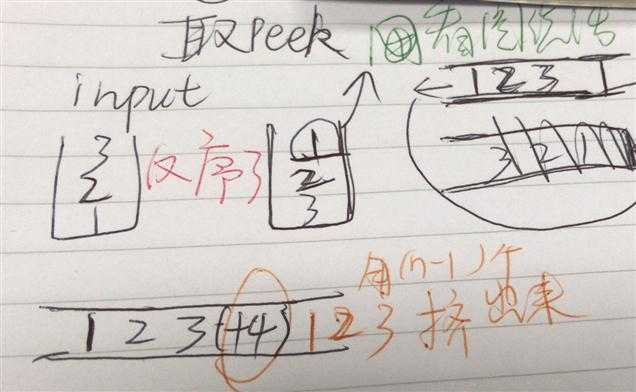 取peek
看图说话
input
3
2
1
反序了
1
2
3
1 2 3 1
3 2 1
用(n-1)个
1 2 3 (+4) 1 2 3 挤出来